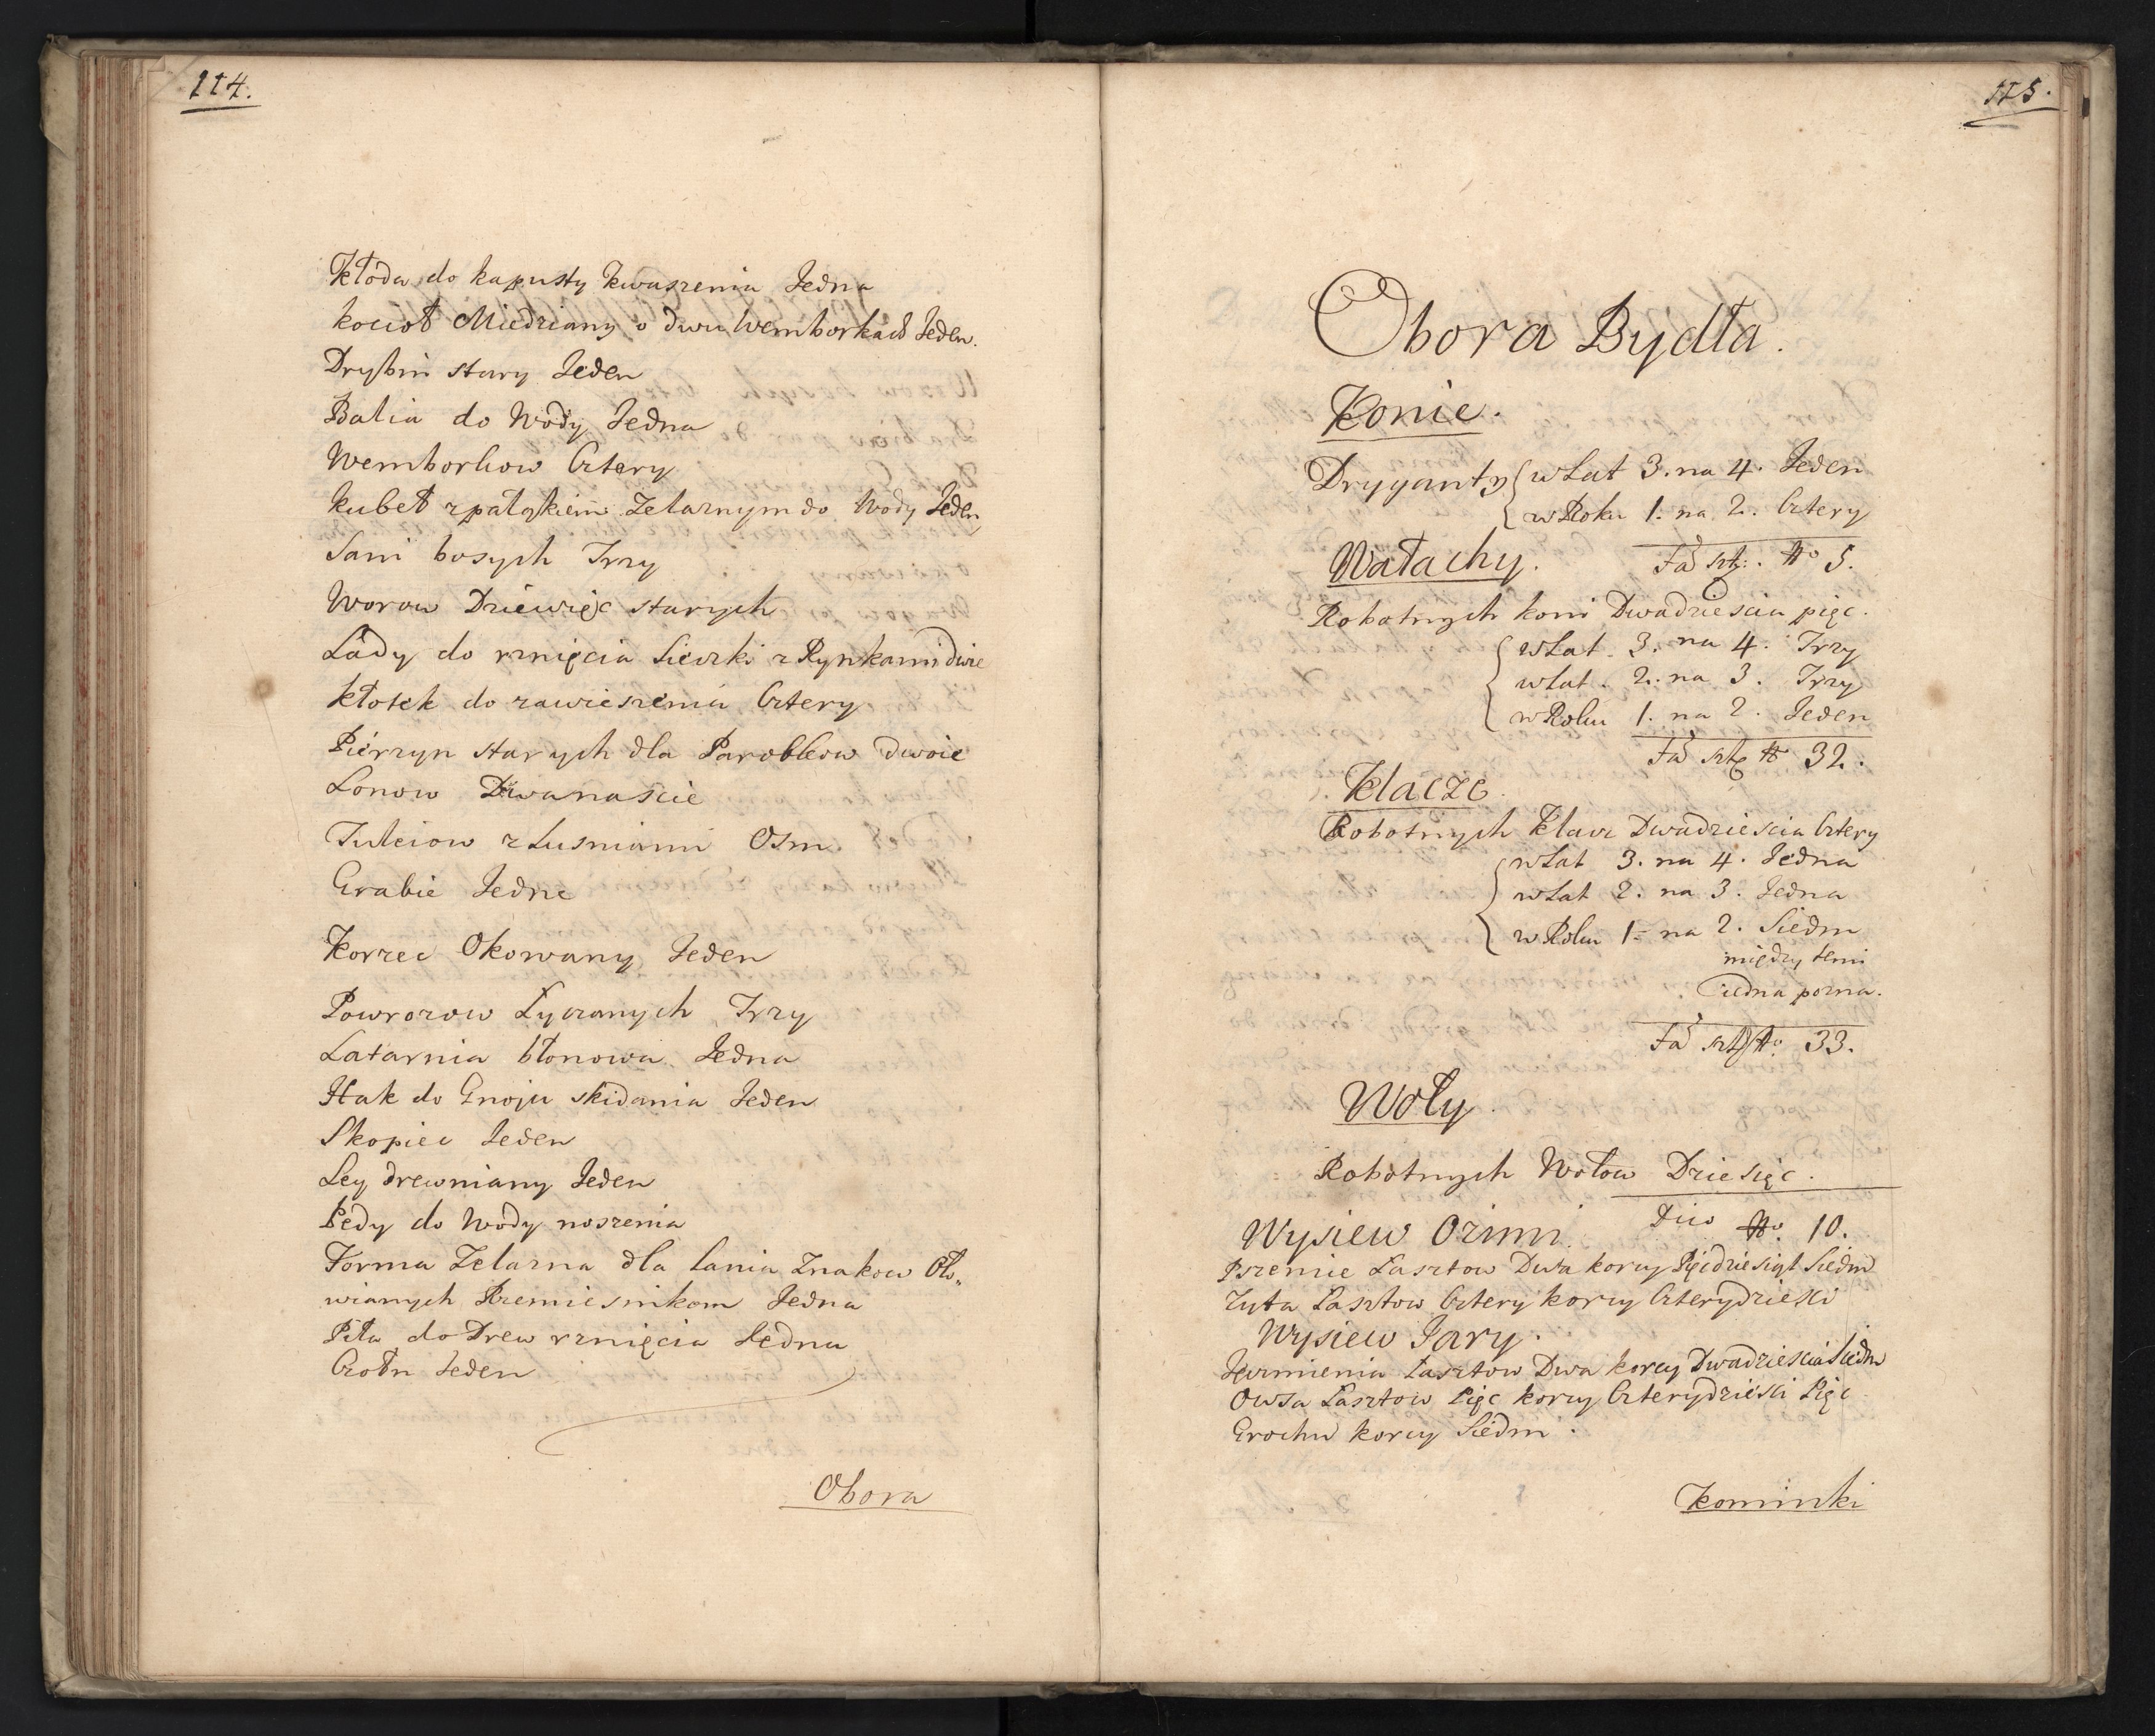 114.
Kłoda do kapusty kwaszenia Jedna
kocioł Miedziany o dwu Wemborkach Jeden.
Dryfuś stary Jeden
Balia do Wody Jedna
Wemborkow Cztery
kubeł z pałąkiem Żelaznym do Wody Jeden
Sani bosych Trzy
Worow Dziewięć starych
Lady do rznięcia Sieczki z Rynkami dwie
kłotek do zawieszenia Cztery
Pierzyn starych dla Parobkow dwoie
Lonow Dwanascie
Tuleiow z Lusniami Osm
Grabie Jedne
Korzec Okowany Jeden
Powrozow Łyczanych Trzy
Latarnia błonowa Jedna
Hak do Gnoju skidania Jeden
Skopiec Jeden
Ley drewniany Jeden
Pedy do Wody noszenia
Forma Żelazna dla lania Znakow Oło„
wianych Rzemiesnikom Jedna
Piła do Drew rznięcia Jedna
Czołn Jeden
Obora
115.
Obora Bydła.
Konie.
Dryganty w Lat 3. na 4. Jeden
w Roku 1. na 2. Cztery
Wałachy. No 5.
Robotnych koni Dwadziescia pięc.
w Lat. 3. na 4. Trzy
w Lat. 2. na 3. Trzy
w Roku 1. na 2. Jeden
No 32.
Klacze.
Robotnych Klacz Dwadziescia Cztery
w Lat 3. na 4. Jedna
w Lat 2. na 3. Jedna
w Roku 1. na 2. Siedm
między temi
Jedna pozna.
No 33.
Woły.
Robotnych Wołow Dziesięc.
No. 10.
Wysiew Ozimi.
Pszenice Łasztow Dwa korcy Pięcdziesiąt Siedm
Zyta Łasztow Cztery korcy Czterydziesci
Wysiew Jary.
Jęczmienia Łasztow Dwa korcy Dwadziescia Siedm
Owsa Łasztow Pięc korcy Czterydziesci Pięc
Grochu korcy Siedm.
Kominki